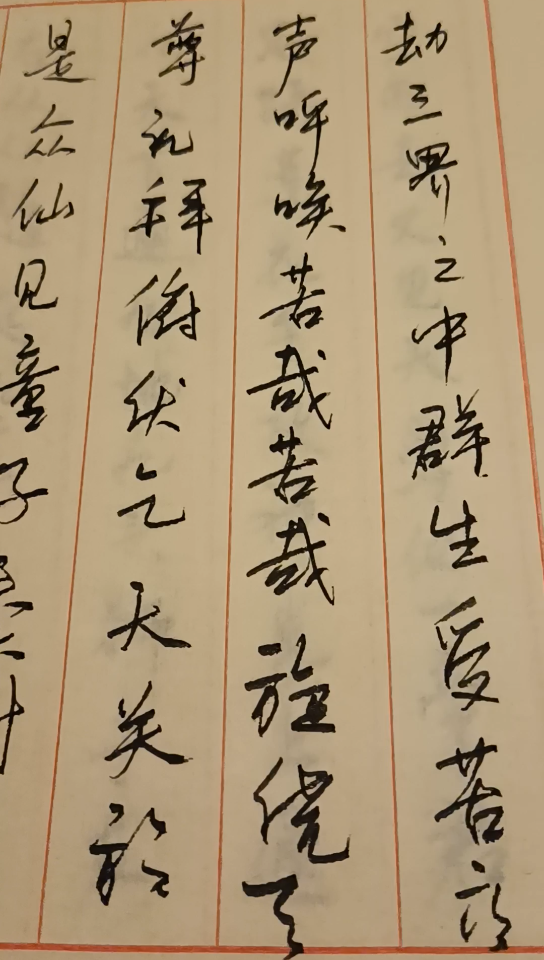 劫三界之中群生受苦
声呼唤苦哉苦哉旋绕天
尊礼拜俯伏乞天关於
是众仙见童子